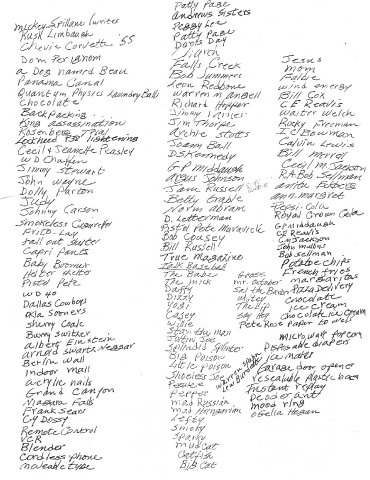 Mickey Spillane (writer
Rush Limbaugh
Chevie Corvette '55
Dom Perignon
a Dog named Beau
Panama Canal
Quantum Physics Laundry Balls
Chocolate
Backpacking
King assassination
Rosenberg Trial
Lockheed P38 Lightening
Cecil & Jeanette Peasley
W D Chaffin
Jimmy Stewart
John Wayne
Dolly Parton
Judy
Johnny Carson
Smokeless Cigarette
Frito-Lay
Fall out shelter
Capri Pants
Baby Boomer
Helter Skelter
Pistol Pete
WD 40
Dallas Cowboys
Okla Sooners
Sherry Coale
Barry Switzer
Albert Einstein
Arnold Swartzneggar
Berlin Wall
Indoor Mall
acrylic nails
Grand Canyon
Niagara Falls
Frank Sears
Cy Dossy
Remote Control
VCR
Blender
Cordless phone
moveable type
Patty Page
Andrews Sisters
Peggy Lee
Patty Page
Doris Day
Falls Creek
Bob Summers
Leon Redbone
Warren M Angell
Richard Hopper
Jimmy Lanier
Jim Thorpe
Archie Stotts
Joann Ball
DS Kennedy
GP Middaugh
Argus Johnson
Jane Russell
Betty Grable
Norm Abram
D. Letterman
Pistol Pete Maravick
Bob Cousey
Bill Russell
True Magazine
Talk Baseball
The Babe
The Mick
Daffy
Dizzy
Yogi
Casey
Willie
Stan the man
Splendid Splinter
Big Poison
Little Poison
Shoeless Joe
Peewee
Pepper
Mad Russian
Mad Hungarian
Lefty
Smoky
Sparky
Mudcat
Catfish
Big Cat
Goose
Mr. October
Sal the Barber
Whitey
The Lip
Say Hey
Pete Rose Paper towels
Jesus
Mom
Faldie
wind energy
Bill Cox
CE Reavis
Walter Welch
Rocky Freeman
I C Bowman
Calvin Lewis
Bill Morrell
Cecil M Jackson
RA Bob Sellman
Anita Ekberg
Ann Margret
Pepsi-Cola
Royal Crown Cola
GP Middaugh
CE Reavis
CM Jackson
John Mullins
Bob Sellman
Potatoe chips
French fries
margaritas
Pizza Delivery
chocolate
ice cream
chocolate ice cream
microwave popcorn
Disposable diapers
ice maker
Garage door opener
resealable plastic bags
Instant replay
deoderant
mood ring